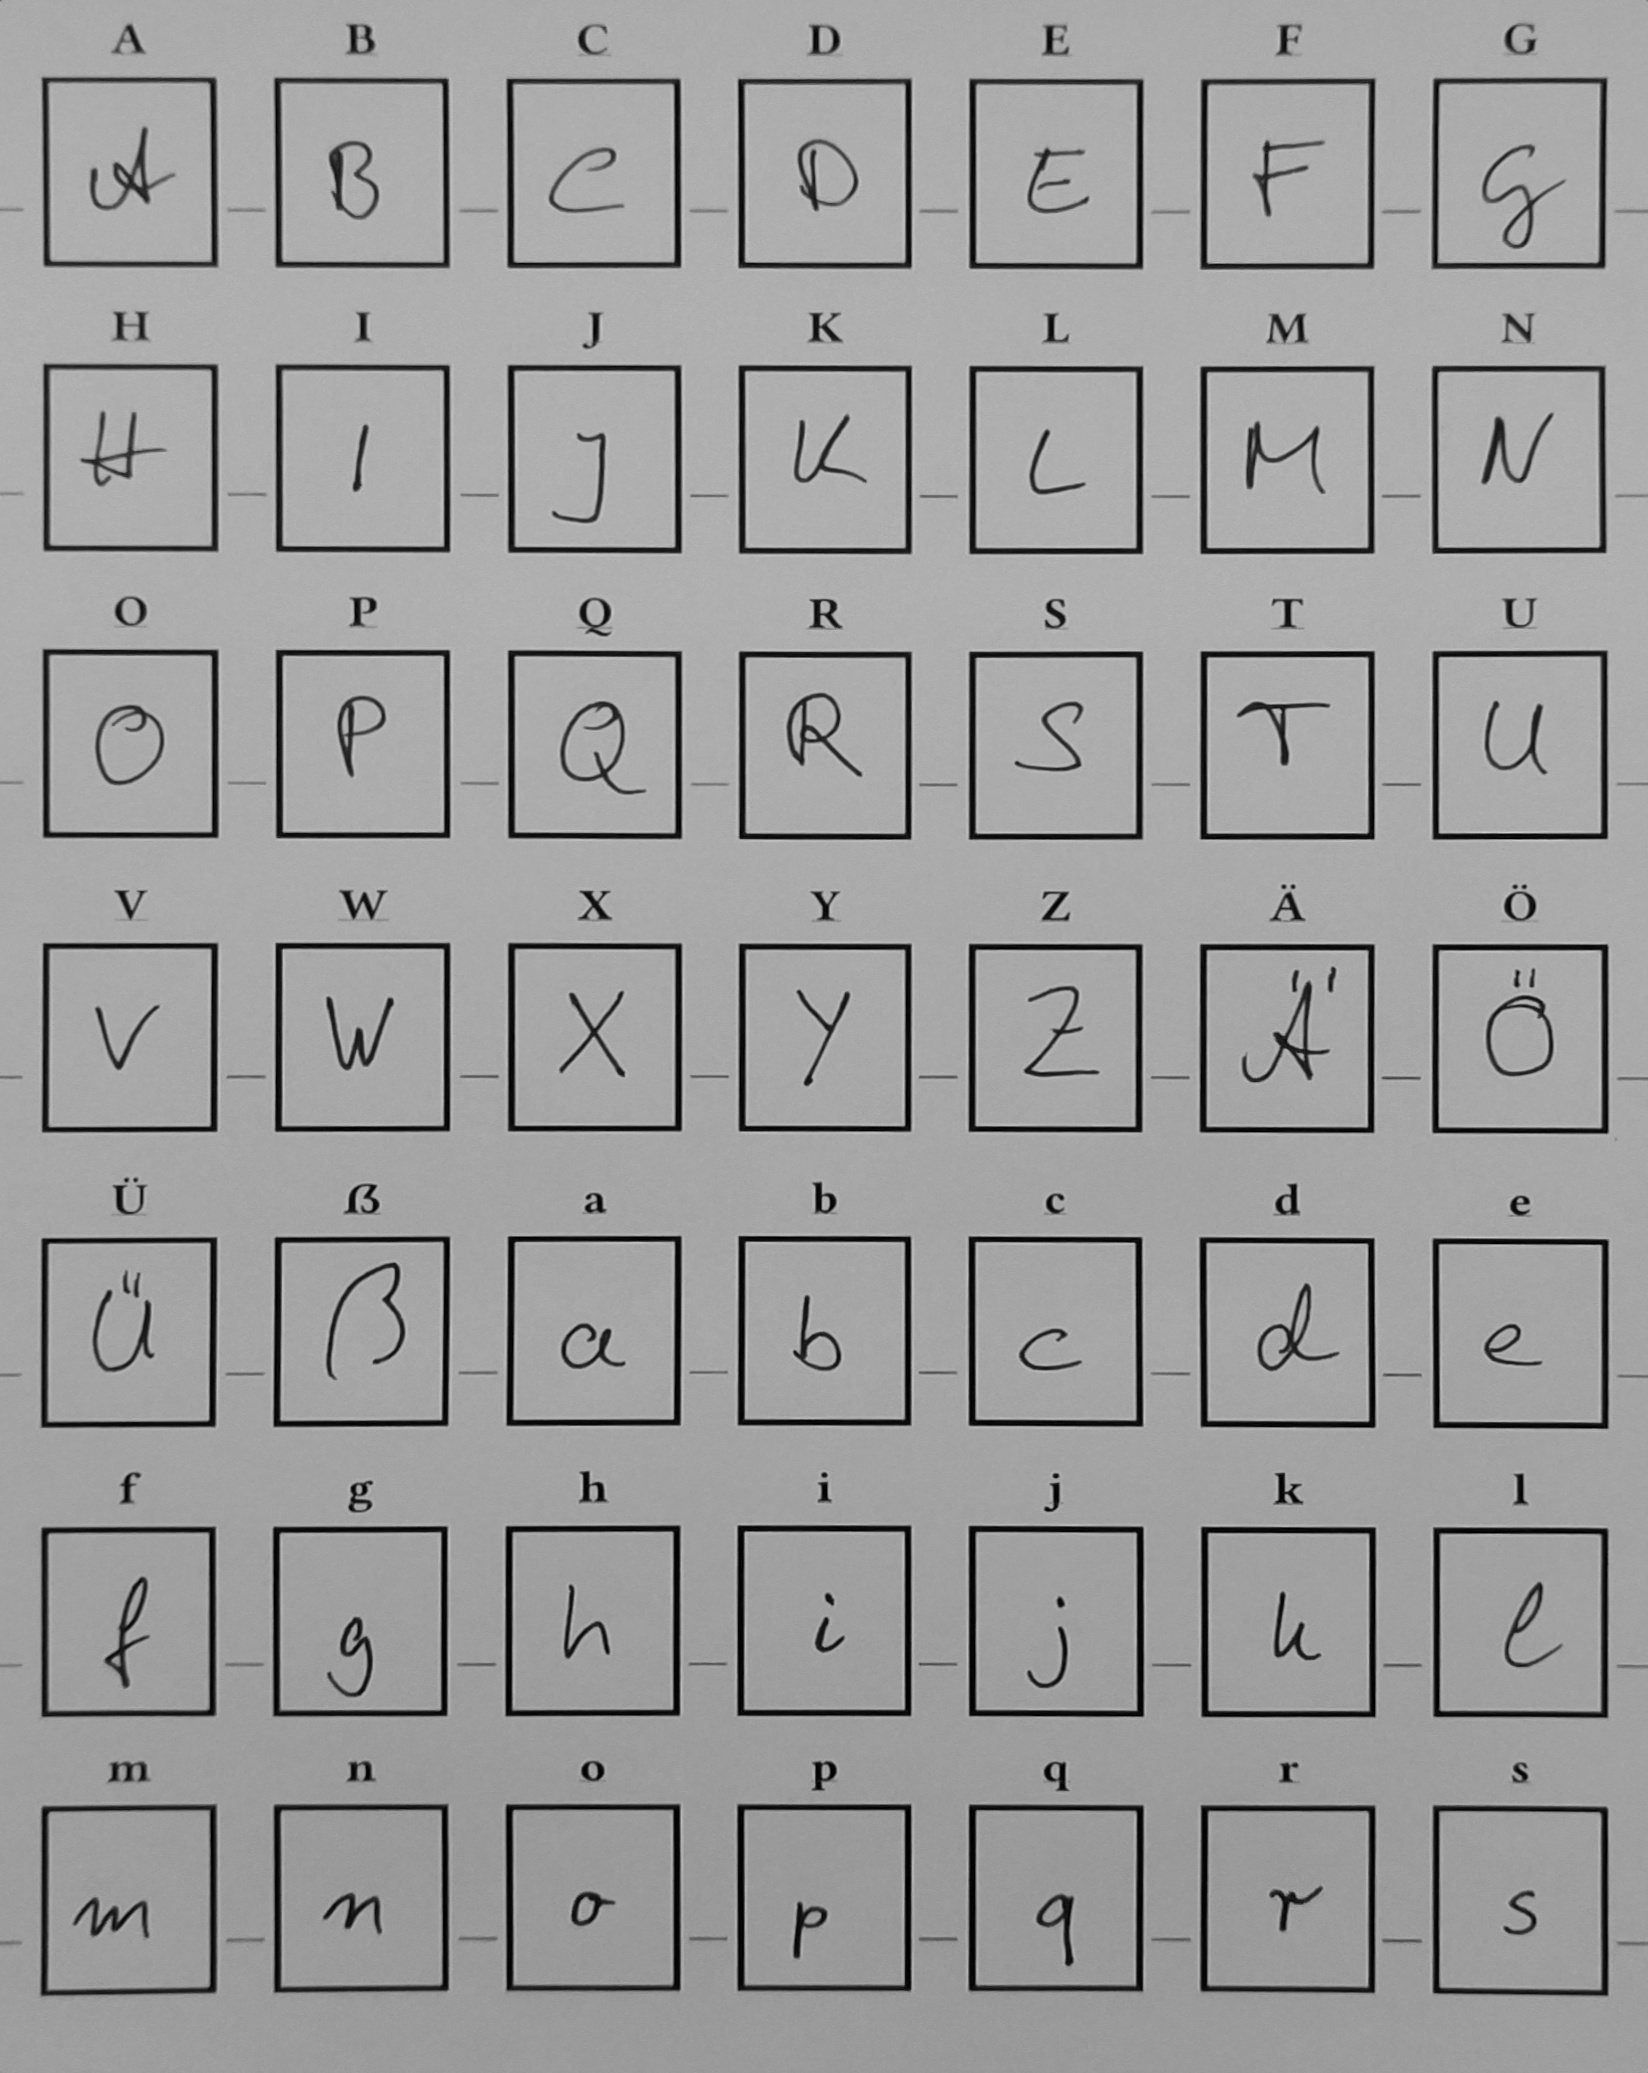 A B C D E F G
A B C D E F G
H I J K L M N
H I J K L M N
O P Q R S T U
O P Q R S T U
V W X Y Z Ä Ö
V W X Y Z Ä Ö
Ü ẞ a b c d e
Ü ß a b c d e
f g h i j k l
f g h i j k l
m n o p q r s
m n o p q r s